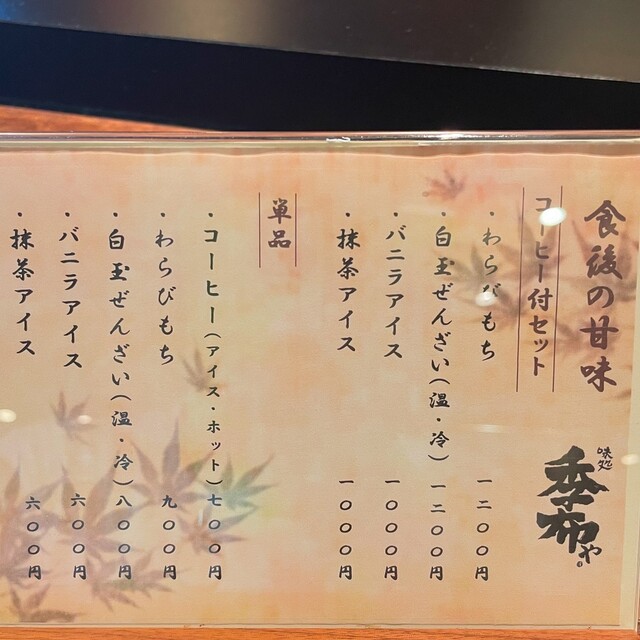 食後の甘味
味処
季布や。
コーヒー付セット
・わらびもち 一二〇〇円
・白玉ぜんざい(温・冷) 一二〇〇円
・バニラアイス 一〇〇〇円
・抹茶アイス 一〇〇〇円
単品
・コーヒー(アイス・ホット) 七〇〇円
・わらびもち 九〇〇円
・白玉ぜんざい(温・冷) 八〇〇円
・バニラアイス 六〇〇円
・抹茶アイス 六〇〇円